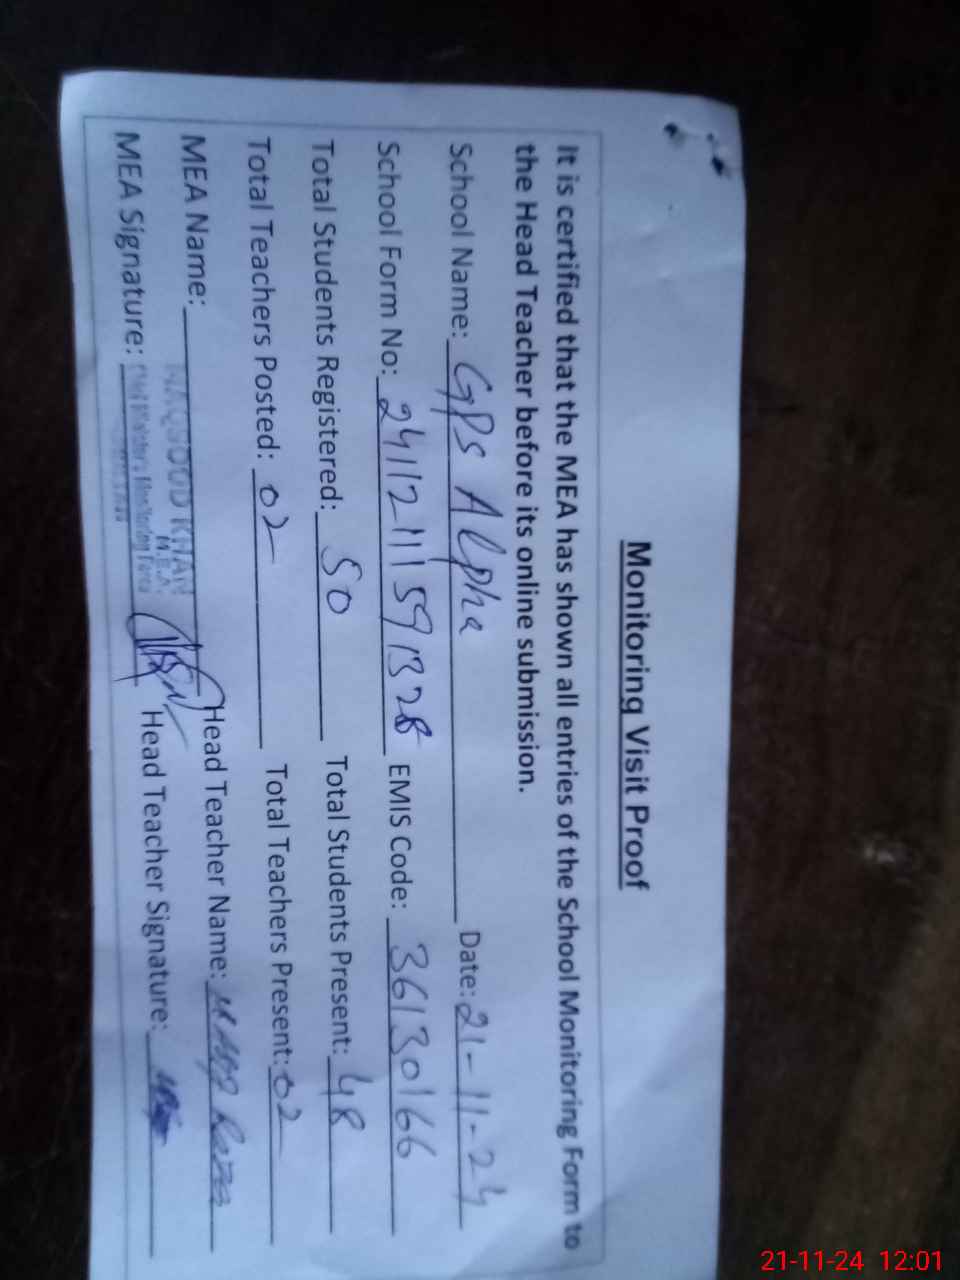 Monitoring Visit Proof
It is certified that the MEA has shown all entries of the School Monitoring Form to
the Head Teacher before its online submission.
School Name: GPS Alpha Date: 21-11-24
School Form No: 241121159 1328 EMIS Code: 36130166
Total Students Registered: 50 Total Students Present: 48
Total Teachers Posted: 02 Total Teachers Present: 02
MEA Name: MAQSOOD KHAN Head Teacher Name:
M.E.A
MEA Signature: Head Teacher Signature:
21-11-24 12:01